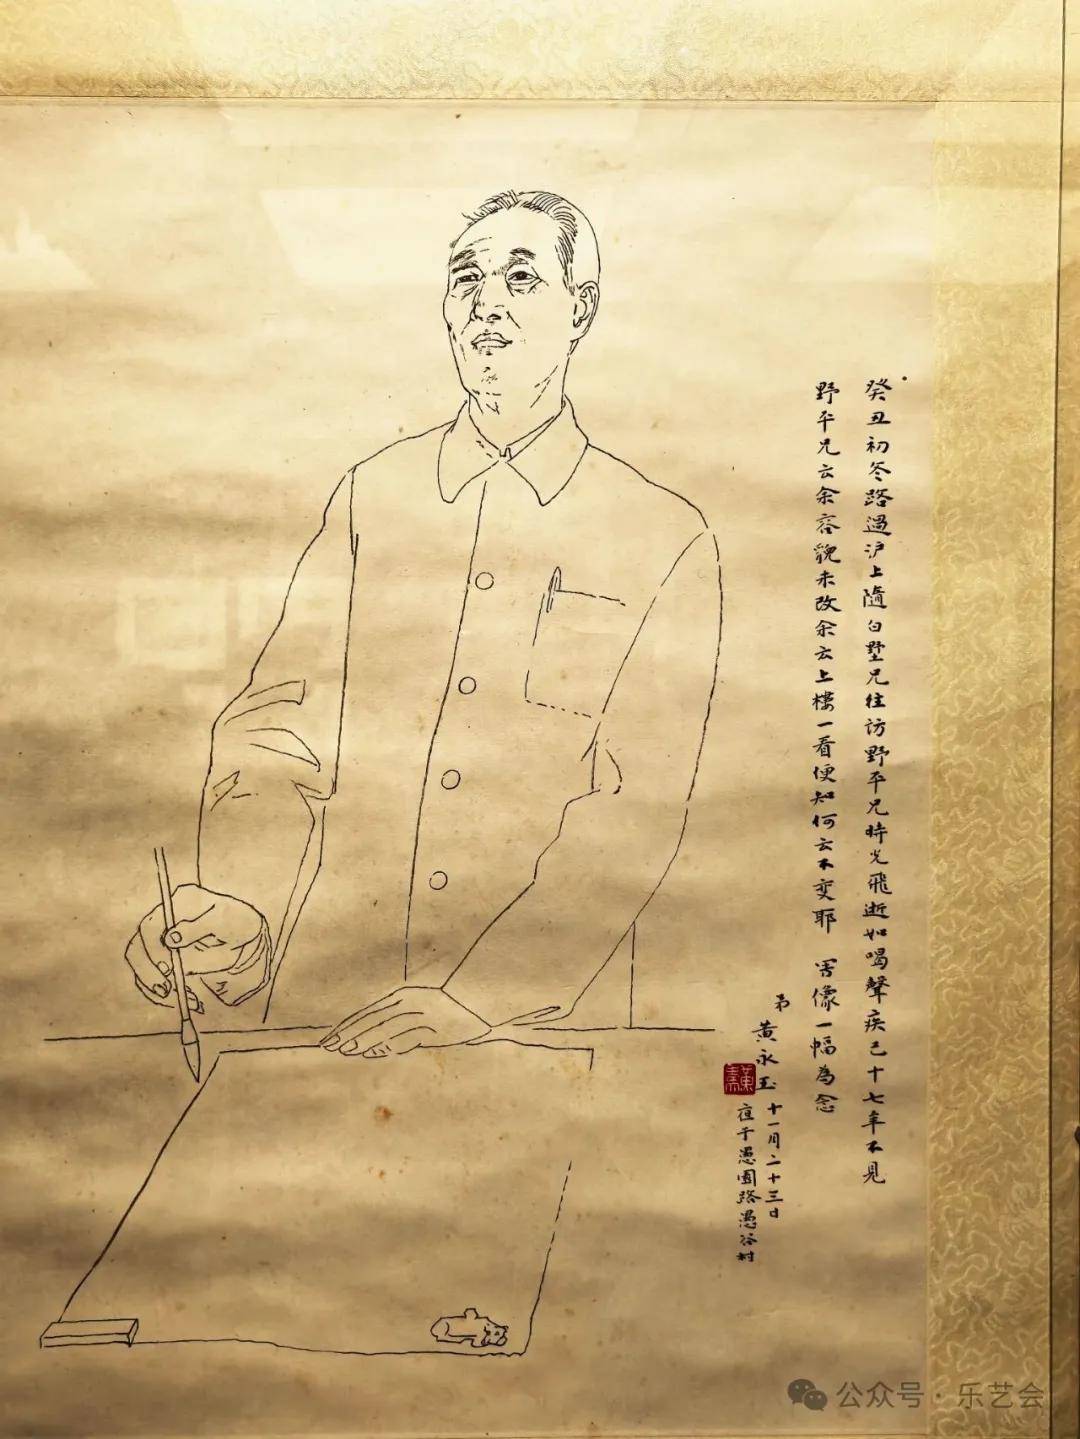 癸丑初冬路過沪上隨白墅兄往访野平兄時光飛逝如喝聲疾已十七年不見
野平兄云余容貌未改余云上樓一看便知何云不变耶 寫像一幅為念
弟
黄永玉
十一月二十三日
夜于愚園路愚谷村
公众号·乐艺会